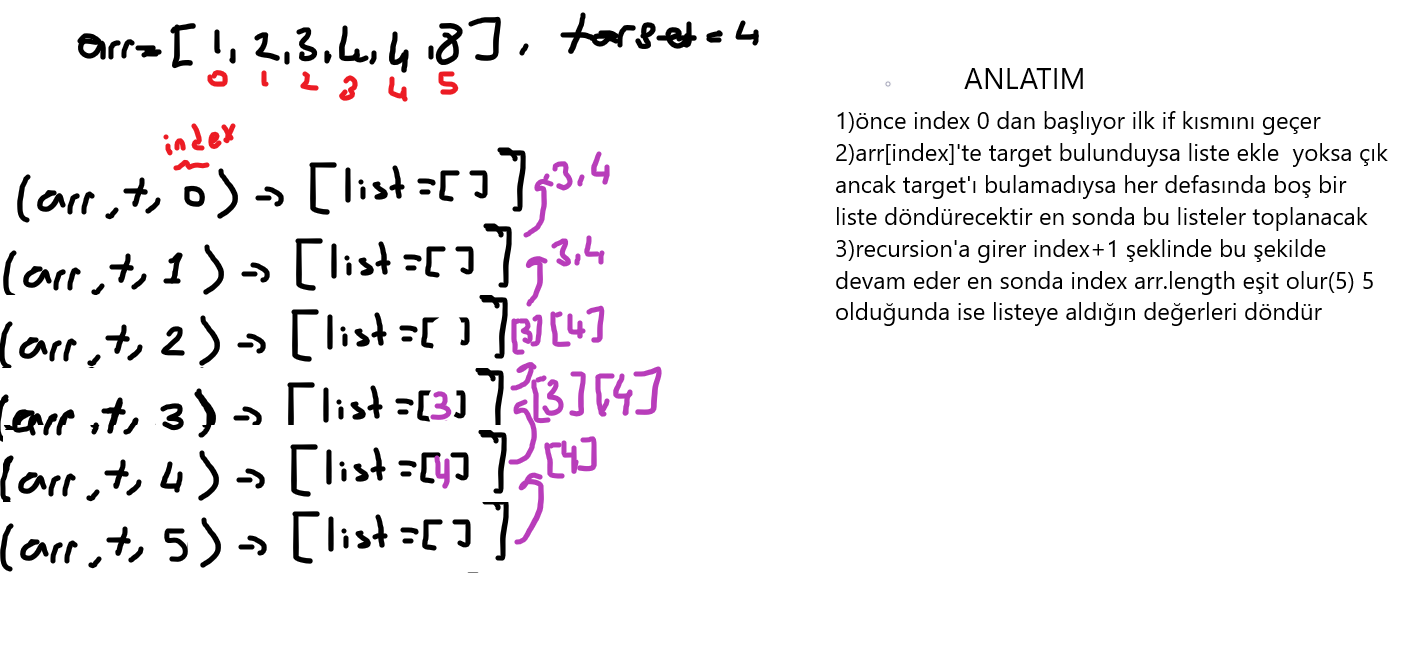 arr=[1,2,3,4,4,8], target=4
0 1 2 3 4 5
index
(arr,t,0)→[list=[]] 3,4
(arr,t,1)→[list=[]] 3,4
(arr,t,2)→[list=[ ]] [3][4]
(arr,t,3)→[list=[3]] [3][4]
(arr,t,4)→[list=[4]] [4]
(arr,t,5)→[list=[]]
ANLATIM
1)önce index 0 dan başlıyor ilk if kısmını geçer
2)arr[index]'te target bulunduysa liste ekle  yoksa çık
ancak target'ı bulamadıysa her defasında boş bir
liste döndürecektir en sonda bu listeler toplanacak
3)recursion'a girer index+1 şeklinde bu şekilde
devam eder en sonda index arr.length eşit olur(5) 5
olduğunda ise listeye aldığın değerleri döndür